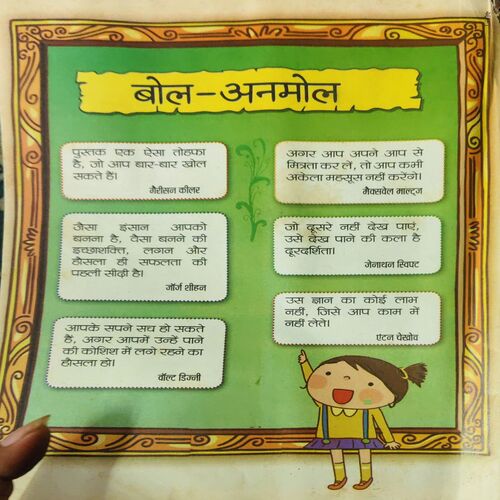 बोल-अनमोल
पुस्तक एक ऐसा तोहफा
है, जो आप बार-बार खोल
सकते हैं।
गैरीसन कीलर
जैसा इंसान आपको
बनना है, वैसा बनने की
इच्छाशक्ति, लगन और
हौसला ही सफलता की
पहली सीढ़ी है।
जॉर्ज शीहन
आपके सपने सच हो सकते
हैं, अगर आपमें उन्हें पाने
की कोशिश में लगे रहने का
हौसला हो।
वॉल्ट डिज्नी
अगर आप अपने आप से
मित्रता कर लें, तो आप कभी
अकेला महसूस नहीं करेंगे।
मैक्सवेल माल्ट्ज
जो दूसरे नहीं देख पाएं,
उसे देख पाने की कला है
दूरदर्शिता।
जेनाथन स्विफ्ट
उस ज्ञान का कोई लाभ
नहीं, जिसे आप काम में
नहीं लेते।
एंटन चेखोव